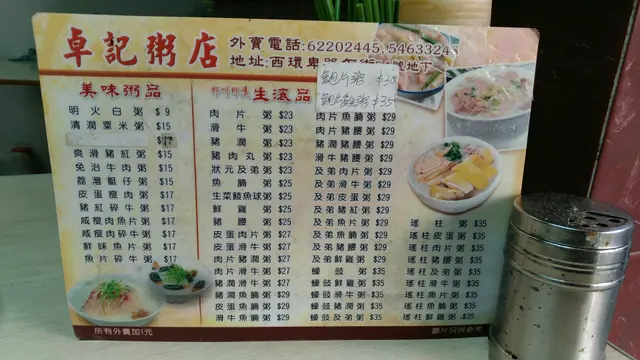 卓記粥店
外賣電話:62202445, 5463324
地址:西環卑路
鯇片粥 $30
$35
美味粥品
生滾品
明火白粥 $9
清潤粟米粥 $15
爽滑豬紅粥 $15
免治牛肉粥 $15
荔灣艇仔粥 $15
皮蛋瘦肉粥 $17
豬紅碎牛粥 $17
咸瘦肉魚片粥 $17
咸瘦肉碎牛粥 $17
鮮味魚片粥 $17
魚片碎牛粥 $17
肉片粥 $23
滑牛粥 $23
豬潤粥 $23
豬肉丸粥 $23
狀元及弟粥 $23
魚腩粥 $25
生菜鯪魚球粥 $25
鮮雞粥 $25
豬腰粥 $25
皮蛋肉片粥 $27
皮蛋滑牛粥 $27
肉片豬潤粥 $27
肉片滑牛粥 $27
豬潤滑牛粥 $27
豬潤魚腩粥 $29
皮蛋魚腩粥 $29
滑牛魚腩粥 $29
肉片魚腩粥 $29
肉片豬腰粥 $29
豬潤豬腰粥 $29
滑牛豬腰粥 $29
及弟肉片粥 $29
及弟滑牛粥 $29
及弟皮蛋粥 $29
及弟豬紅粥 $29
及弟魚片粥 $29
及弟豬潤粥 $29
及弟魚腩粥 $29
及弟豬腰粥 $29
及弟鮮雞粥 $29
蠔豉粥 $35
蠔豉鮮雞粥 $35
蠔豉滑牛粥 $35
蠔豉豬潤粥 $35
蠔豉及弟粥 $35
瑤柱粥 $35
瑤柱皮蛋粥 $35
瑤柱肉片粥 $35
瑤柱滑牛粥 $35
瑤柱豬潤粥 $35
瑤柱豬腰粥 $35
瑤柱及弟粥 $35
瑤柱魚片粥 $35
瑤柱魚腩粥 $35
瑤柱鮮雞粥 $35
所有外賣加1元
圖片只供參考